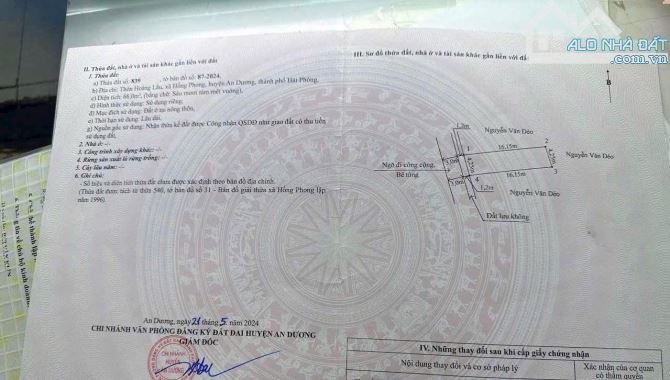 ALO NHÀ ĐẤT
.com.vn
II. Thửa đất, nhà ở và tài sản khác gắn liền với đất
1. Thửa đất:
a) Thửa đất số: 839, tờ bản đồ số: 87-2024,
b) Địa chỉ: Thôn Hoàng Lâu, xã Hồng Phong, huyện An Dương, thành phố Hải Phòng,
c) Diện tích: 68,0m², (bằng chữ: Sáu mươi tám mét vuông),
d) Hình thức sử dụng: Sử dụng riêng,
đ) Mục đích sử dụng: Đất ở tại nông thôn,
e) Thời hạn sử dụng: Lâu dài,
g) Nguồn gốc sử dụng: Nhận thừa kế đất được Công nhận QSDĐ như giao đất có thu tiền
sử dụng đất.
2. Nhà ở: -/-
3. Công trình xây dựng khác: -/-
4. Rừng sản xuất là rừng trồng: -/-
5. Cây lâu năm: -/-
6. Ghi chú:
- Số hiệu và diện tích thửa đất chưa được xác định theo bản đồ địa chính.
(Thửa đất được tách từ thửa 580, tờ bản đồ số 31 - Bản đồ giải thửa xã Hồng Phong lập
năm 1996).
III. Sơ đồ thửa đất, nhà ở và tài sản khác gắn liền với đất
B
1,2m
Nguyễn Văn Déo
1
16,15m
2
Nguyễn Văn Déo
Ngõ đi công cộng
Bê tông
16,15m
3
4
1,2m
Nguyễn Văn Déo
Đất lưu không
An Dương, ngày 21 tháng 5 năm 2024
CHI NHÁNH VĂN PHÒNG ĐĂNG KÝ ĐẤT ĐAI HUYỆN AN DƯƠNG
GIÁM ĐỐC
CHI NHÁNH
HUYỆN
AN DƯƠNG
IV. Những thay đổi sau khi cấp giấy chứng nhận
Nội dung thay đổi và cơ sở pháp lý
Xác nhận của cơ quan
có thẩm quyền